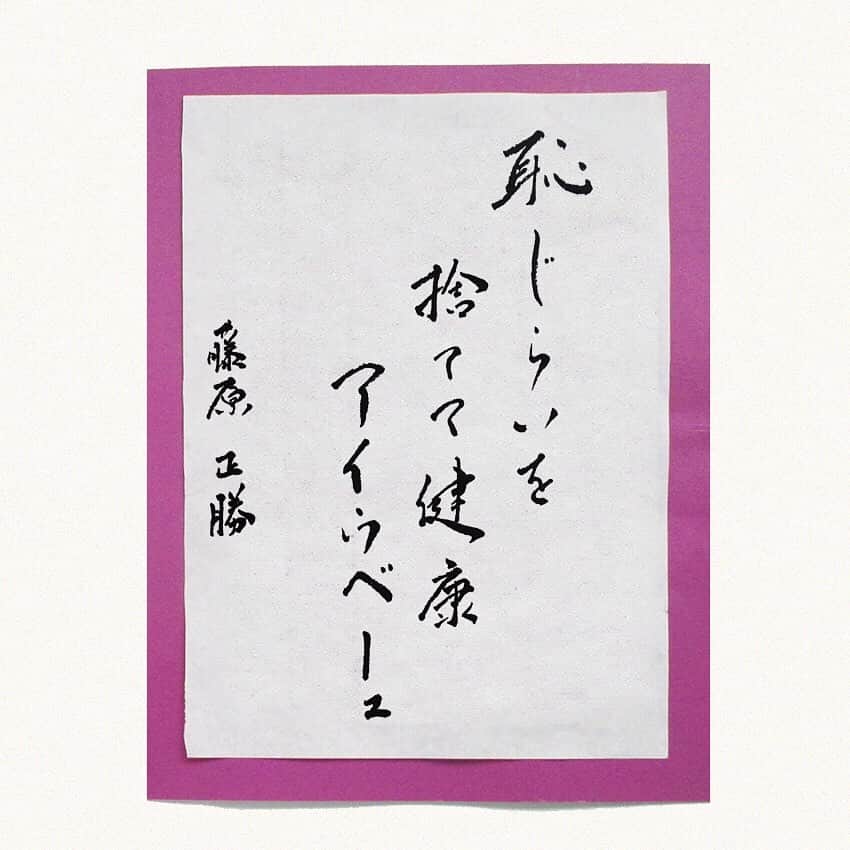 恥じらいを
捨てて健康
アイウベーェ
藤原 正勝